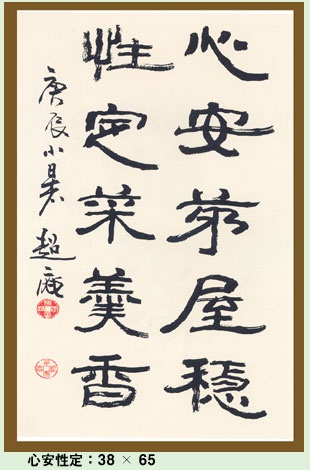 心安茅屋穩
性定菜羹香
庚辰小暑 超庵
心安性定：38 × 65